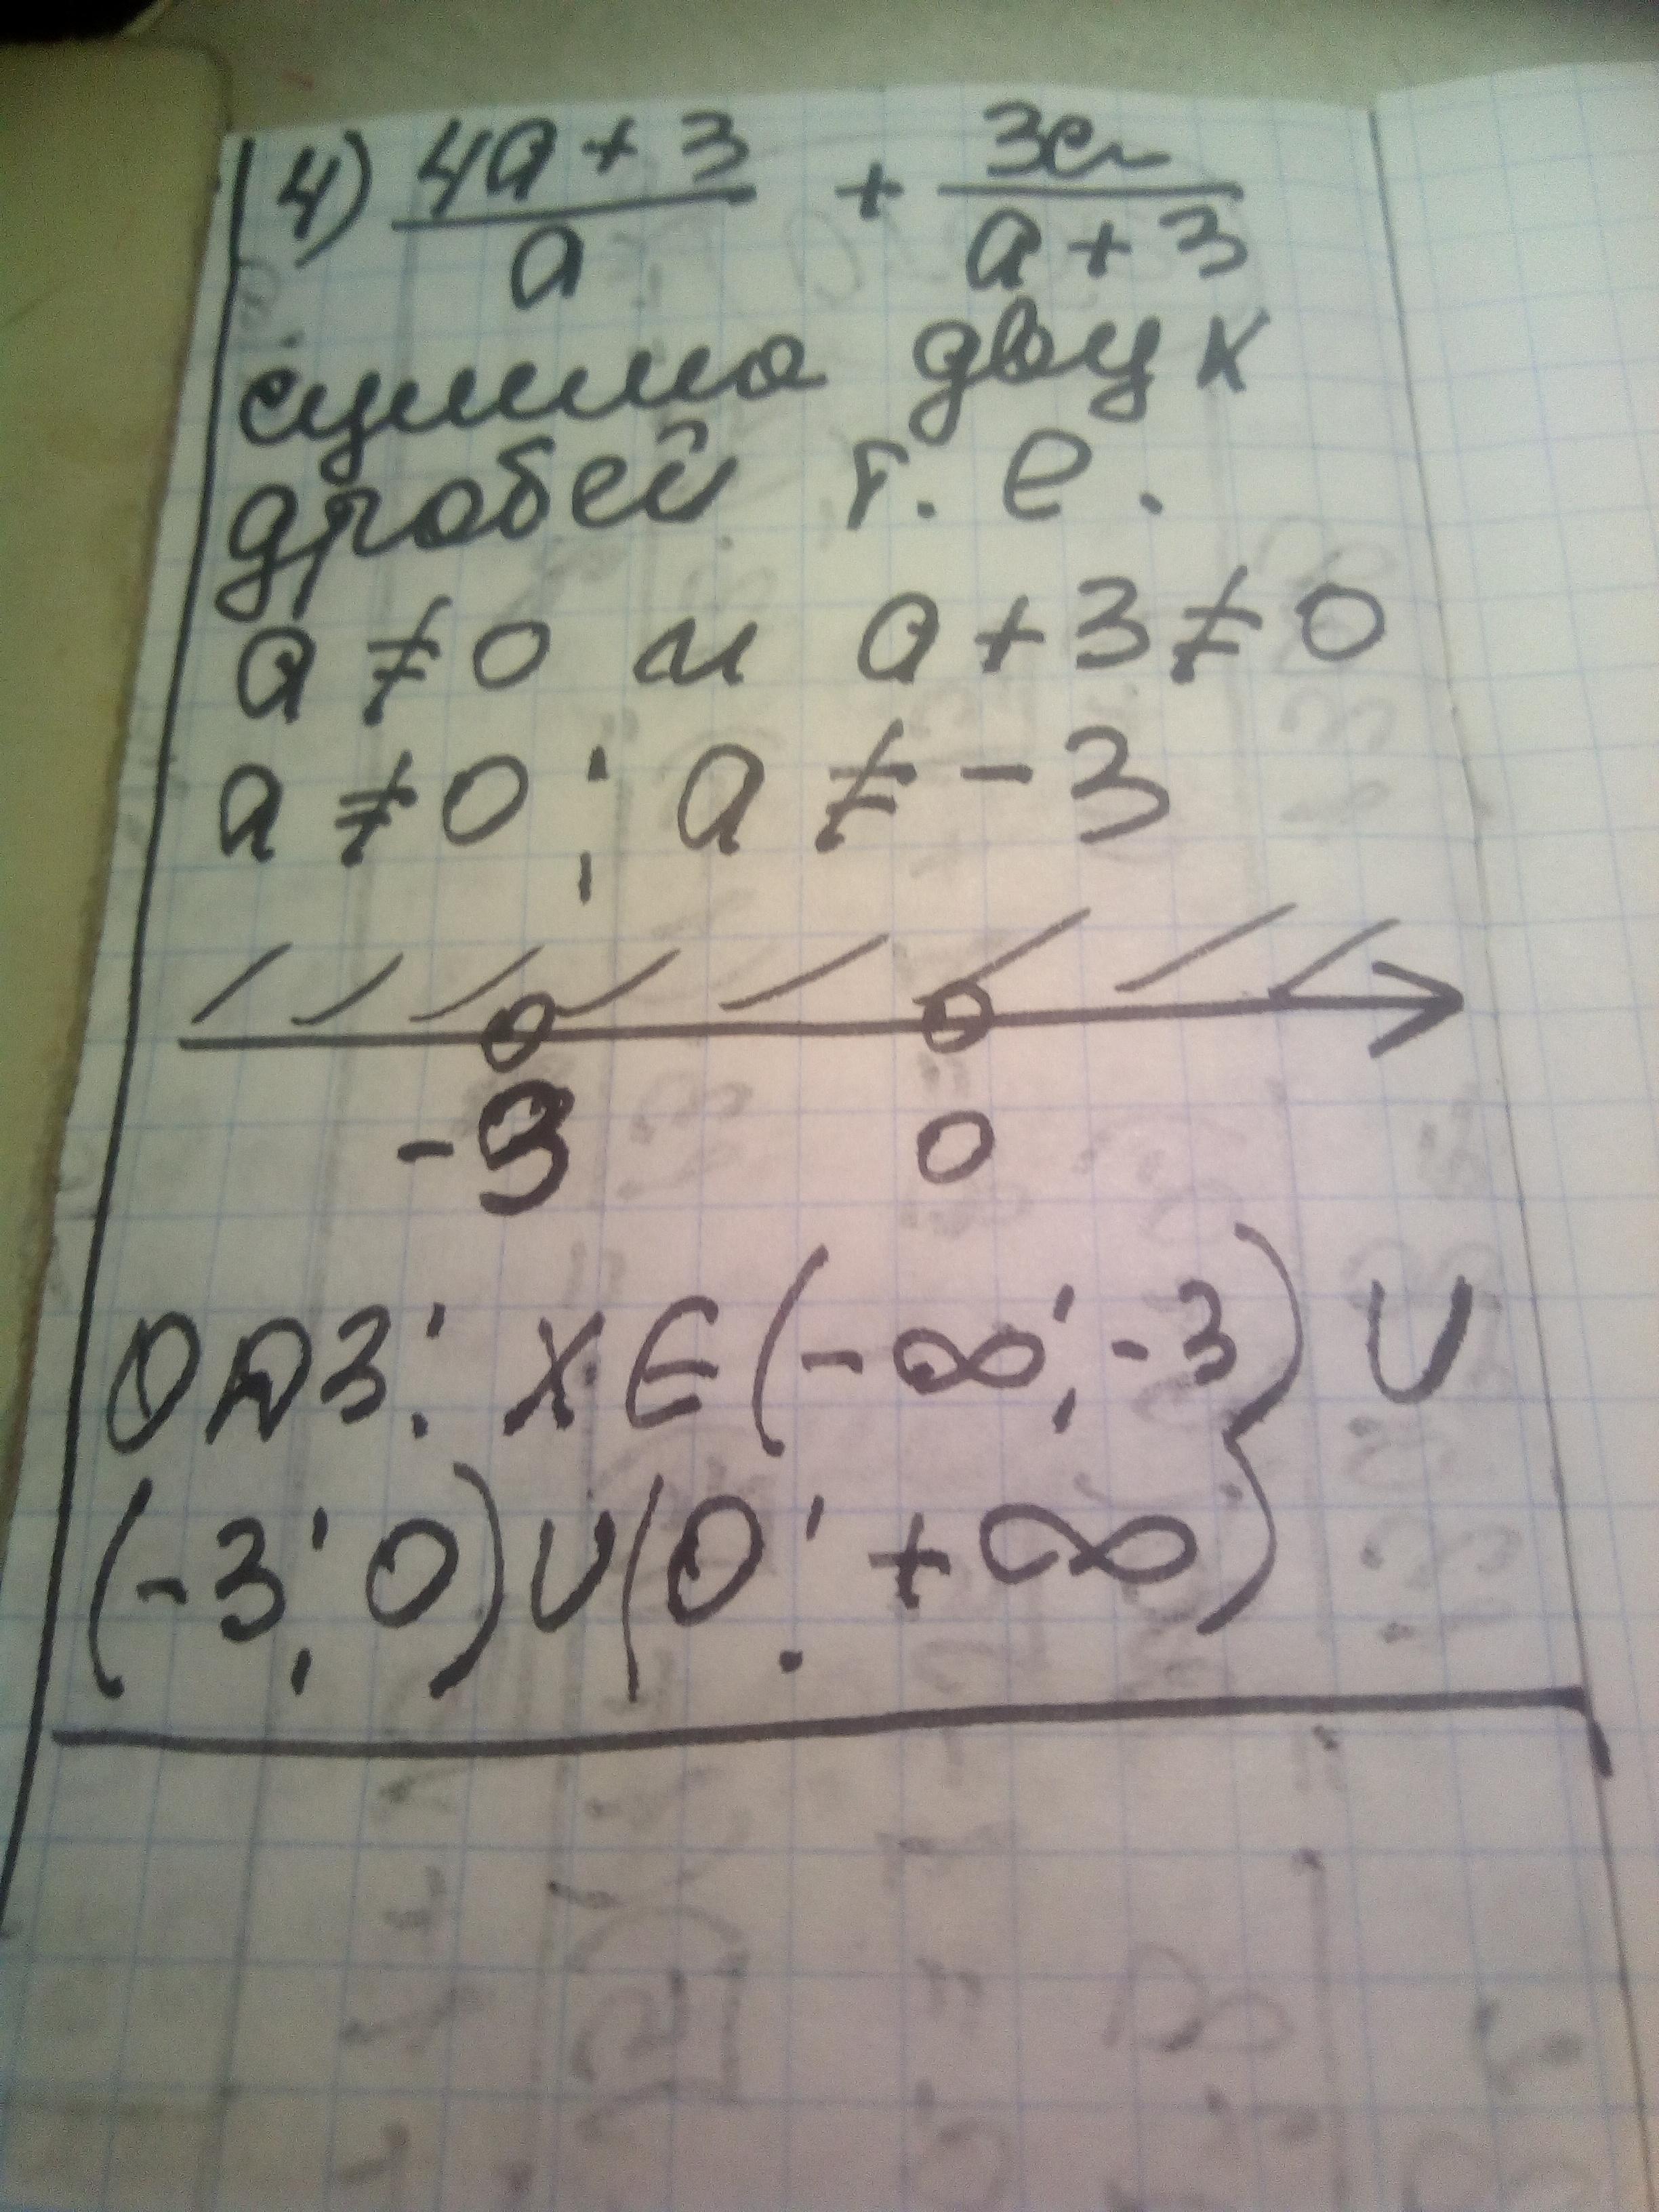 4) (4a + 3)/a + 3a/(a + 3)
сумма двух
дробей т. е.
a ≠ 0 и a + 3 ≠ 0
a ≠ 0 ; a ≠ - 3
-3 0
ОДЗ: X ∈ (-∞; -3) ∪
(-3; 0) ∪ (0; +∞)